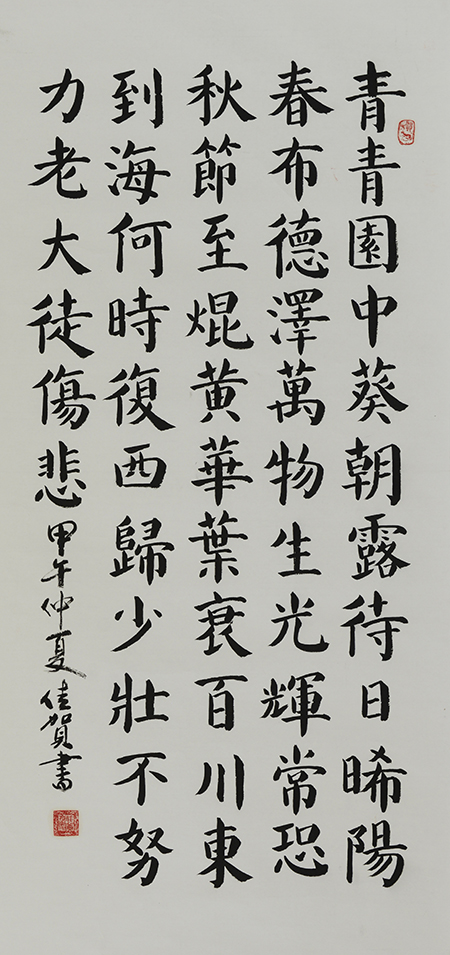 青青園中葵朝露待日晞陽
春布德澤萬物生光輝常恐
秋節至焜黄華葉衰百川東
到海何時復西歸少壯不努
力老大徒傷悲甲午仲夏佳賀書